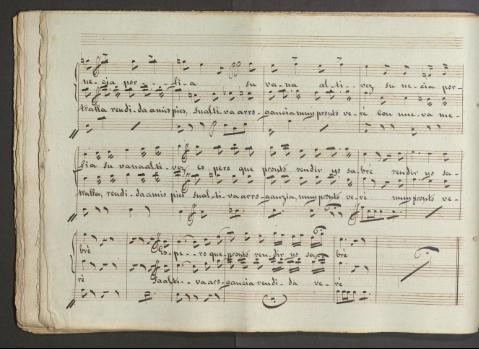 ne-cia por - - fi-a su va-na al-ti-vez su ne-cia por-
tralla rendi-da a mis pies, su alti-va arro-gancia muy pronto ve-ré con nue-va me-
fia su vana alti-vez es pero que pronto rendir yo sa-bre rendir yo sa-
tralla, rendi-da a mis pies su al-ti-va arro-ganzia, muy pronto ve-ré muy pronto ve-
brè Es-pe-ro que pronto ren-dir yo sa-brè
rè Su alti-va arro-gancia rendi-da ve-rè